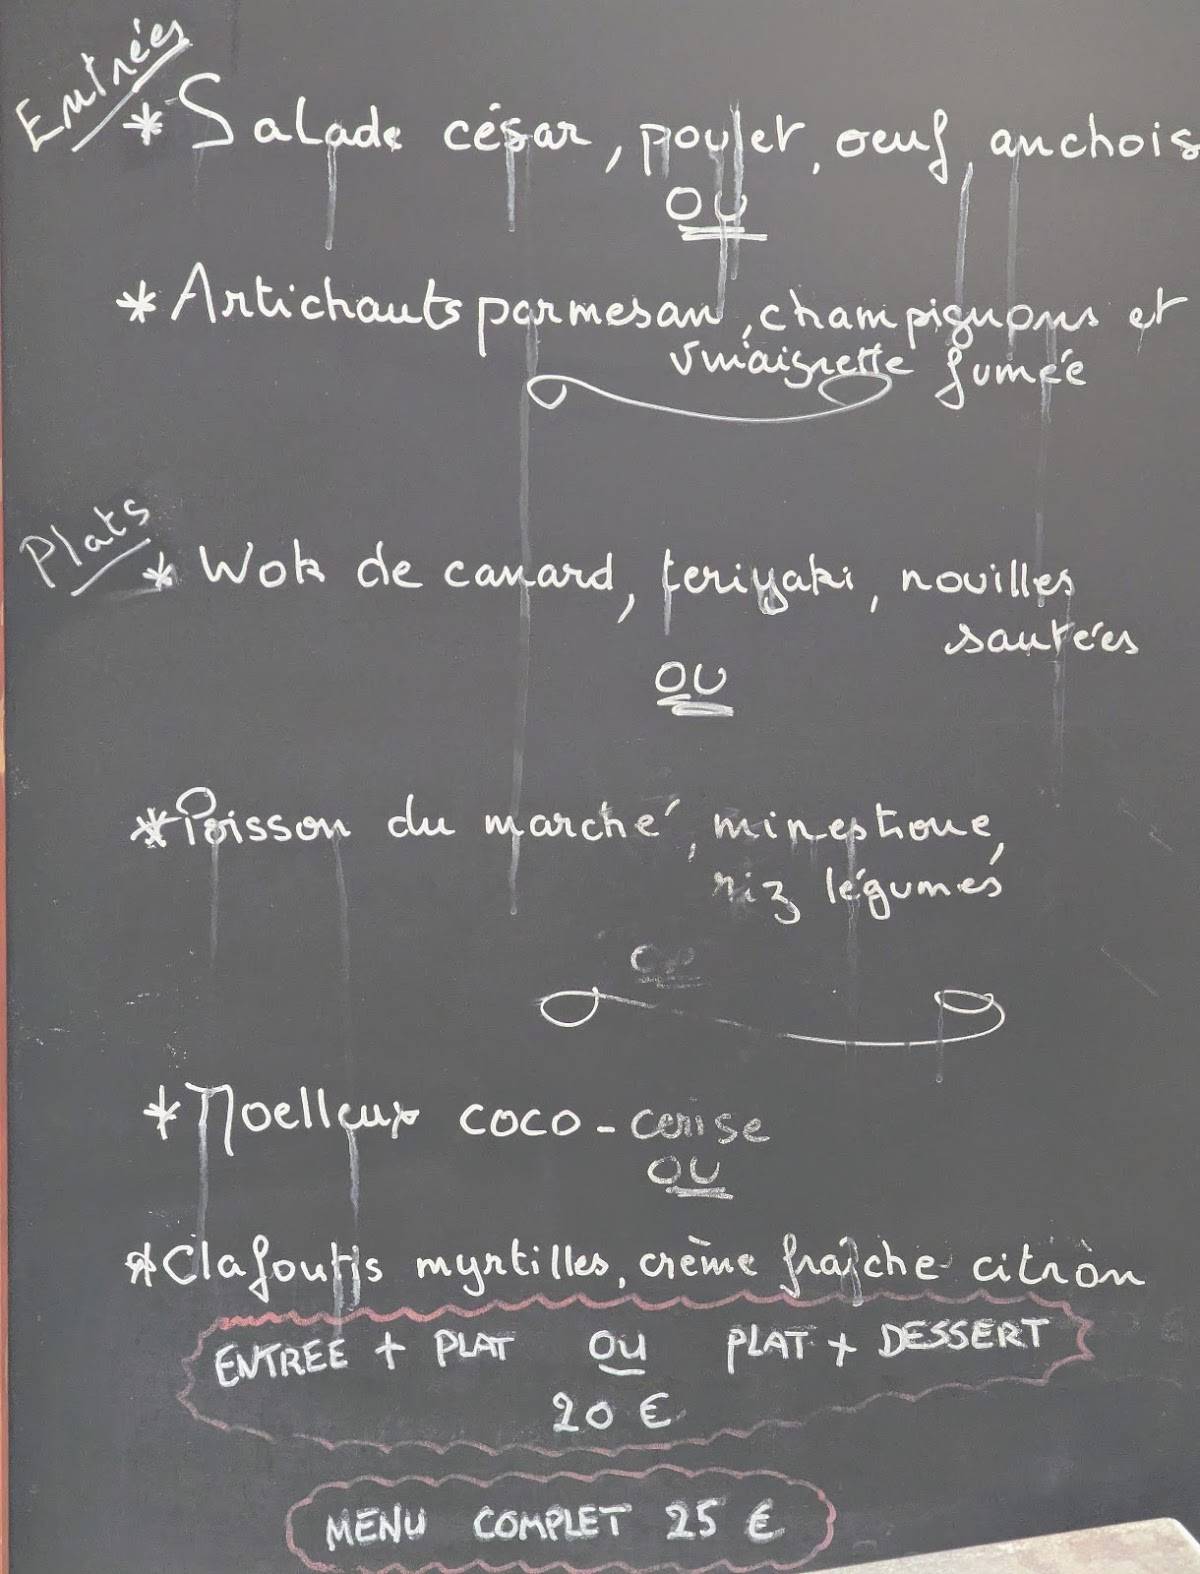 Entrées
* Salade césar, poulet, oeuf, anchois
OU
* Artichauts parmesan, champignons et
vinaigrette fumée
Plats
* Wok de canard, teriyaki, nouilles
sautées
OU
* Poisson du marché, minestrone,
riz légumes
* Moelleux coco - cerise
OU
* Clafoutis myrtilles, crème fraîche citron
ENTREE + PLAT OU PLAT + DESSERT
20 €
MENU COMPLET 25 €